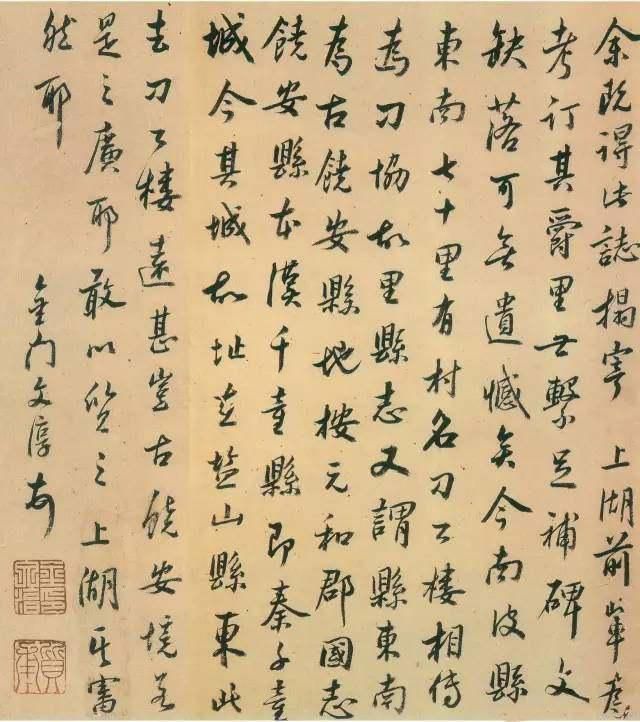 余既得此誌搨寄 上湖前輩
考訂其爵里世繫足補碑文
缺落可無遺憾矣今南皮縣
東南七十里有村名刁公樓相傳
為刁協故里縣志又謂縣東南
為古饒安縣地按元和郡國志
饒安縣本漢千童縣即秦千童
城今其城故址在鹽山縣東此
去刁公樓遠甚豈古饒安境若
是之廣耶敢以質之 上湖其當
然耶
金門文淳
質甫